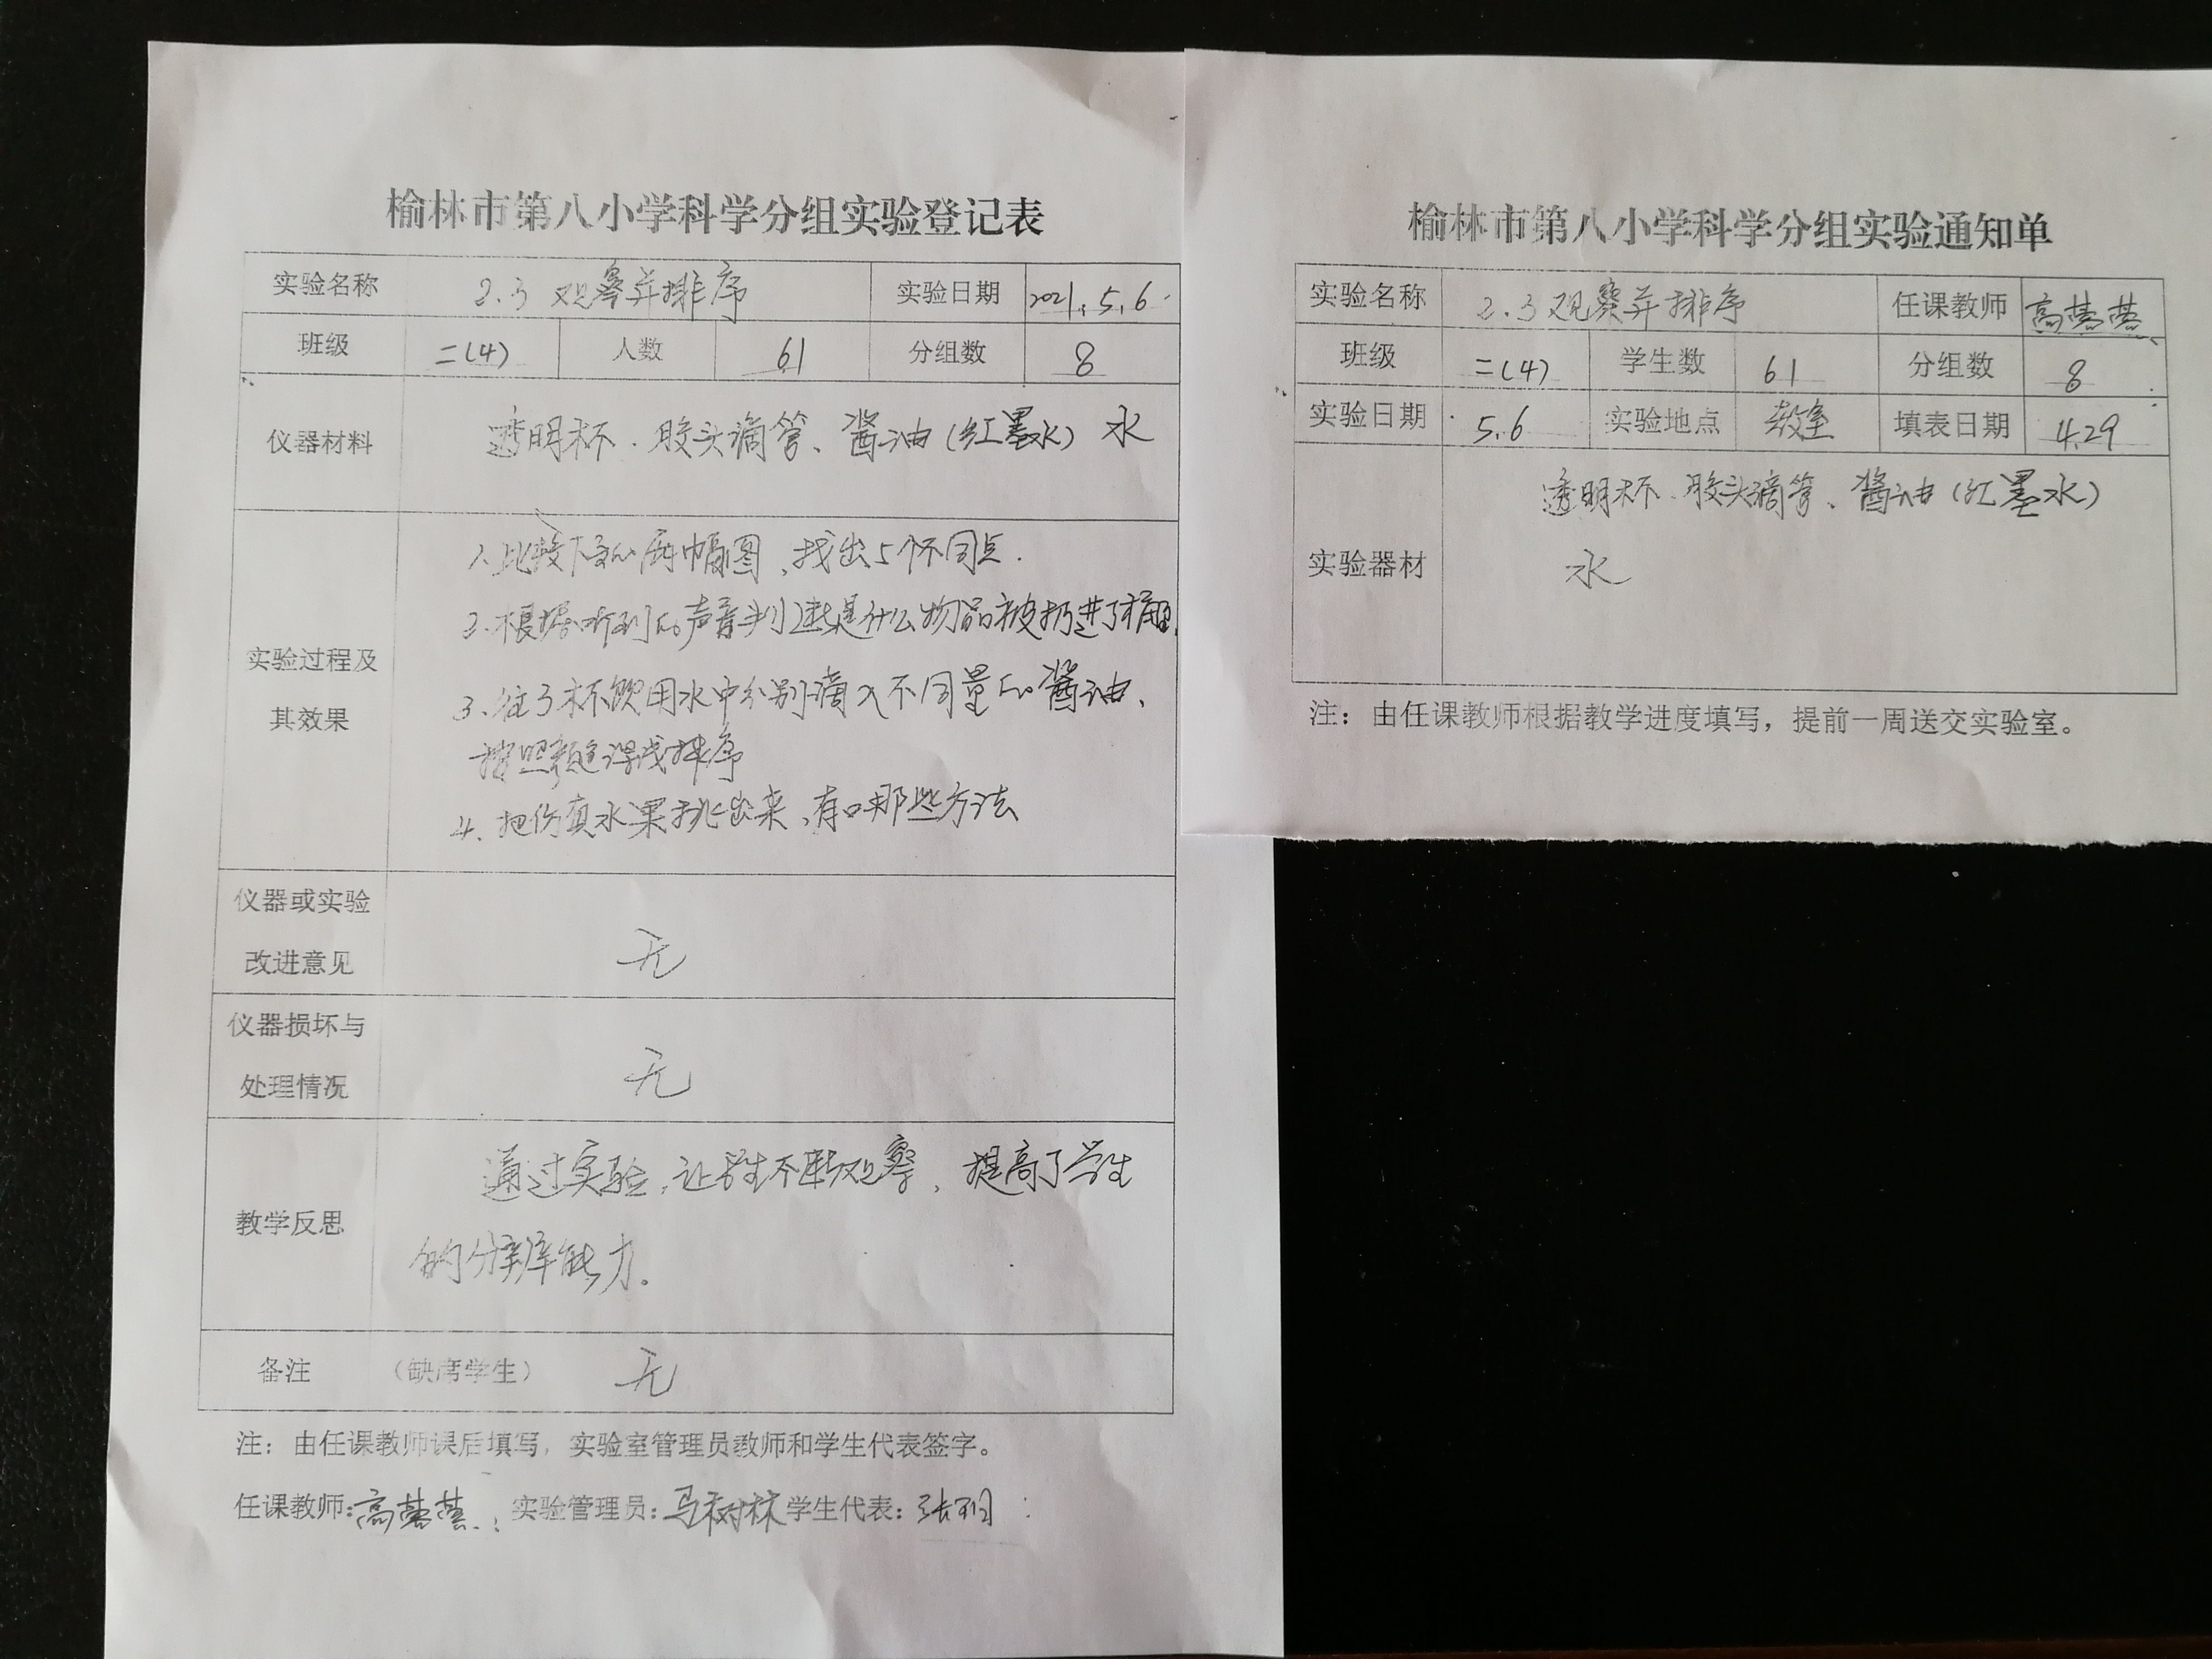 榆林市第八小学科学分组实验登记表
实验名称 2.3 观察并排序 实验日期 2021.5.6.
班级 二(4) 人数 61 分组数 8
仪器材料 透明杯、胶头滴管、酱油(红墨水) 水
实验过程及
其效果
1、比较下面的两幅图,找出5个不同点.
2.根据听到的声音判断是什么物品被扔进了桶里.
3、往3杯饮用水中分别滴入不同量的酱油、
按照颜色深浅排序
4、把仿真水果挑出来,有哪些方法
仪器或实验
改进意见
无
仪器损坏与
处理情况
无
教学反思
通过实验,让学生不断观察,提高了学生
的分辨能力。
备注 (缺席学生) 无
注:由任课教师课后填写,实验室管理员教师和学生代表签字。
任课教师: 实验管理员:马树林 学生代表:
榆林市第八小学科学分组实验通知单
实验名称 2.3 观察并排序 任课教师
班级 二(4) 学生数 61 分组数 8
实验日期 5.6 实验地点 教室 填表日期 4.29
实验器材
透明杯、胶头滴管、酱油(红墨水)
水
注:由任课教师根据教学进度填写,提前一周送交实验室。